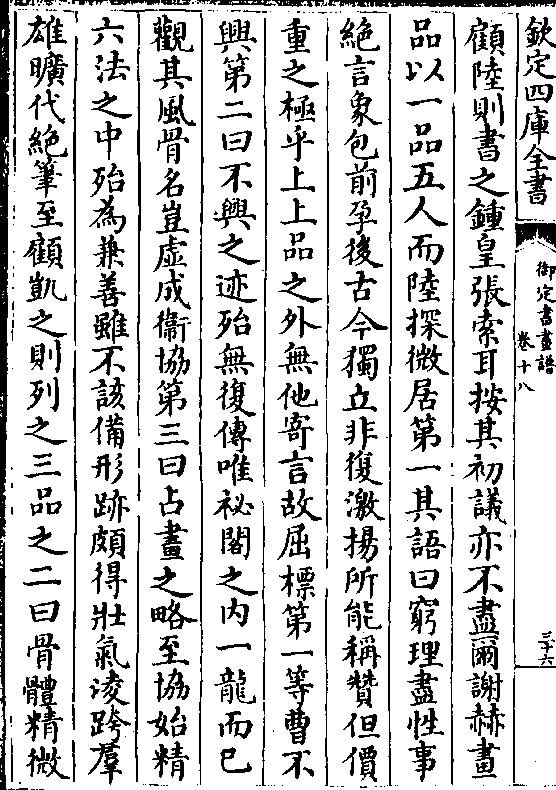 欽定四庫全書
御定書畫譜
卷十八
三十六
顧陸則書之鍾皇張索耳按其初議亦不盡爾謝赫畫
品以一品五人而陸探微居第一其語曰窮理盡性事
絶言象包前孕後古今獨立非復激揚所能稱贊但價
重之極乎上上品之外無他寄言故屈標第一等曹不
興第二曰不興之迹殆無復傳唯祕閣之内一龍而已
觀其風骨名豈虚成衞協第三曰占畫之略至協始精
六法之中殆為兼善雖不該備形跡頗得壯氣凌跨羣
雄曠代絶筆至顧凱之則列之三品之二曰骨體精微